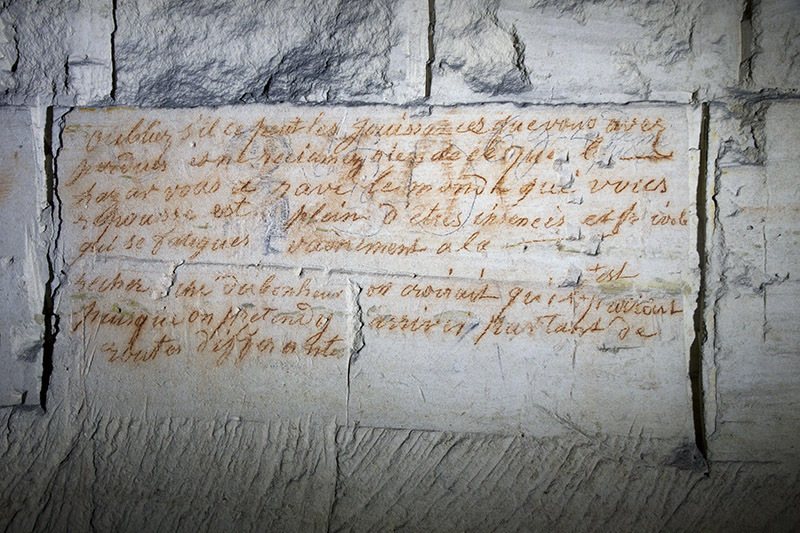 oublier s'il ce peut les jouissances que vous avez
perdues et ne reclamez rien de ce que le
hazar vous a ravi le monde qui vous
repousse est plein d'êtres et frivole
qui se fatigues vainement a la
recherche du bonheur on croirait qu'il est par tout
puisque on pretend y arriver par tant de
routes differantes